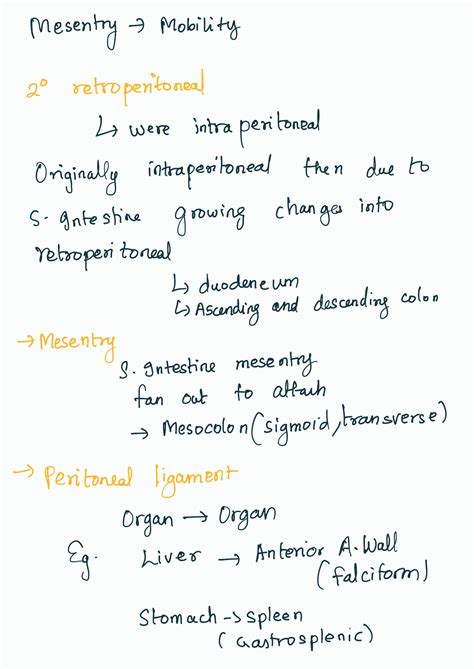 Mesentry → Mobility
2° retroperitoneal
↳ were intra peritoneal
Originally intraperitoneal then due to
S. Intestine growing changes into
retroperitoneal
↳ duodeneum
↳ Ascending and descending colon
→ Mesentry
S. Intestine mesentry
fan out to attach
→ Mesocolon (sigmoid, transverse)
→ Peritoneal ligament
Organ → Organ
Eg. Liver → Anterior A. Wall
(falciform)
Stomach → spleen
(Gastrosplenic)